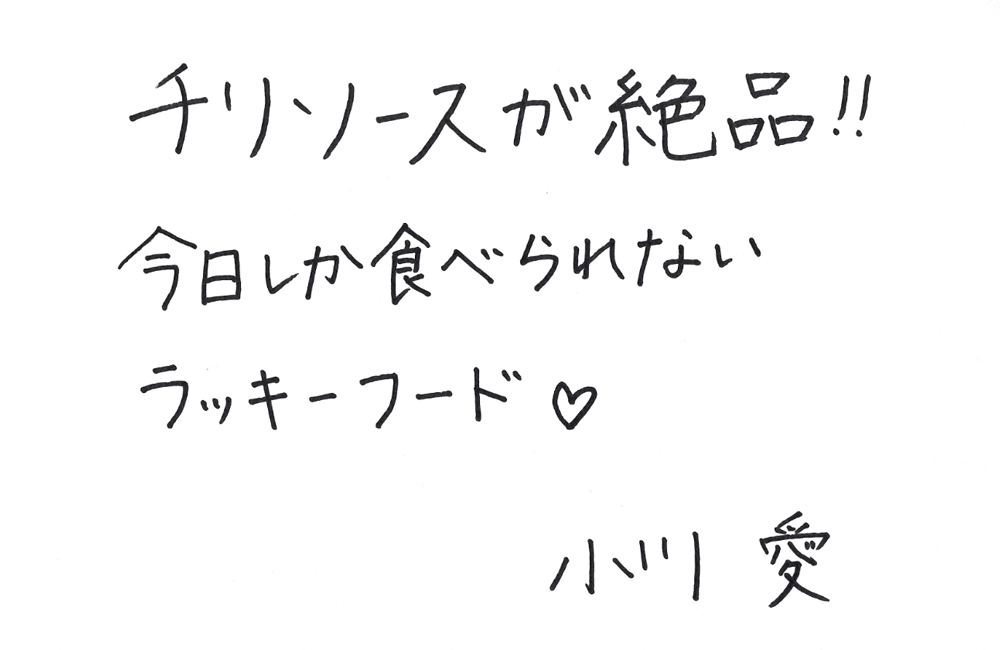 チリソースが絶品!!
今日しか食べられない
ラッキーフード♡
小川 愛